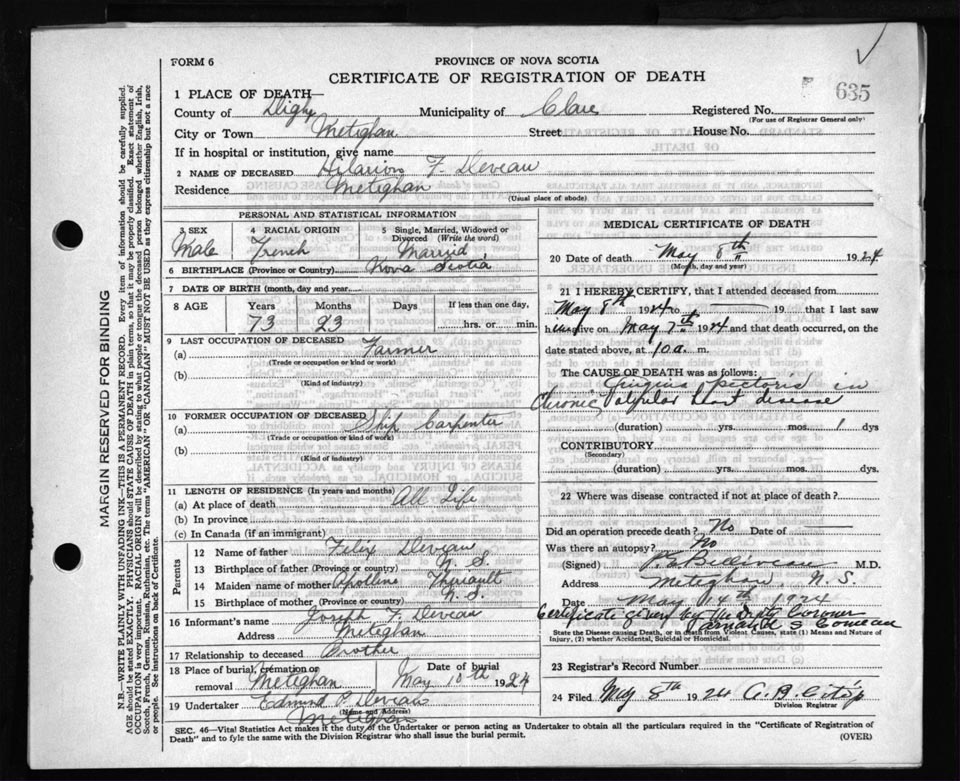 FORM 6
PROVINCE OF NOVA SCOTIA
CERTIFICATE OF REGISTRATION OF DEATH
635
1 PLACE OF DEATH—
County of Digby Municipality of Clare Registered No.
(For use of Registrar General only)
City or Town Metighan Street House No.
If in hospital or institution, give name
2 NAME OF DECEASED Hilarion F. Deveau
Residence Metighan
(Usual place of abode)
PERSONAL AND STATISTICAL INFORMATION
3 SEX 4 RACIAL ORIGIN 5 Single, Married, Widowed or Divorced (Write the word)
Male French Married
6 BIRTHPLACE (Province or Country) Nova Scotia
7 DATE OF BIRTH (month, day and year)
8 AGE Years Months Days If less than one day,
73 23 hrs. or min.
9 LAST OCCUPATION OF DECEASED
(a) Farmer
(Trade or occupation or kind of work)
(b)
(Kind of industry)
10 FORMER OCCUPATION OF DECEASED
(a) Ship Carpenter
(Trade or occupation or kind of work)
(b)
(Kind of industry)
11 LENGTH OF RESIDENCE (In years and months)
(a) At place of death All Life
(b) In province
(c) In Canada (if an immigrant)
Parents
12 Name of father Felix Deveau
13 Birthplace of father (Province or country) N. S.
14 Maiden name of mother Apolline Theriault
15 Birthplace of mother N. S.
16 Informant's name Joseph F. Deveau
Address Metighan
17 Relationship to deceased Brother
18 Place of burial, cremation or removal Metighan Date of burial May 10th 1924
19 Undertaker Edmund P. Deveau
(Name and Address)
Metighan
MEDICAL CERTIFICATE OF DEATH
20 Date of death May 8th 1924
(Month, day and year)
21 I HEREBY CERTIFY, that I attended deceased from
May 8th 1924 to 19 that I last saw
alive on May 7th 1924 and that death occurred, on the
date stated above, at 10 a. m.
The CAUSE OF DEATH was as follows:
Angina pectoris in
Chronic valvular heart disease
(duration) yrs. mos. 1 dys
CONTRIBUTORY
(Secondary)
(duration) yrs. mos. dys.
22 Where was disease contracted if not at place of death?
Did an operation precede death? No Date of
Was there an autopsy? No
(Signed) M.D.
Address Meteghan N. S.
Date May 14th 1924
Certificate given by the Coroner
S Comeau
State the Disease causing Death, or in death from Violent Causes, state (1) Means and Nature of
Injury, (2) whether Accidental, Suicidal or Homicidal.
23 Registrar's Record Number
24 Filed May 8th 1924
Division Registrar
SEC. 46—Vital Statistics Act makes it the duty of the Undertaker or person acting as Undertaker to obtain all the particulars required in the "Certificate of Registration of
Death" and to fyle the same with the Division Registrar who shall issue the burial permit.
(OVER)
MARGIN RESERVED FOR BINDING
N.B.—WRITE PLAINLY WITH UNFADING INK—THIS IS A PERMANENT RECORD. Every item of information should be carefully supplied.
AGE should be stated EXACTLY. PHYSICIANS should STATE CAUSE OF DEATH in plain terms, so that it may be properly classified. Exact statement of
OCCUPATION is very important. RACIAL ORIGIN will be described by stating to what people or tongue the deceased person belonged whether English, Irish,
Scotch, French, German, Russian, Ruthenian, etc. The terms "AMERICAN" or "CANADIAN" MUST NOT BE USED as they express citizenship but not a race
or people. See instructions on back of Certificate.